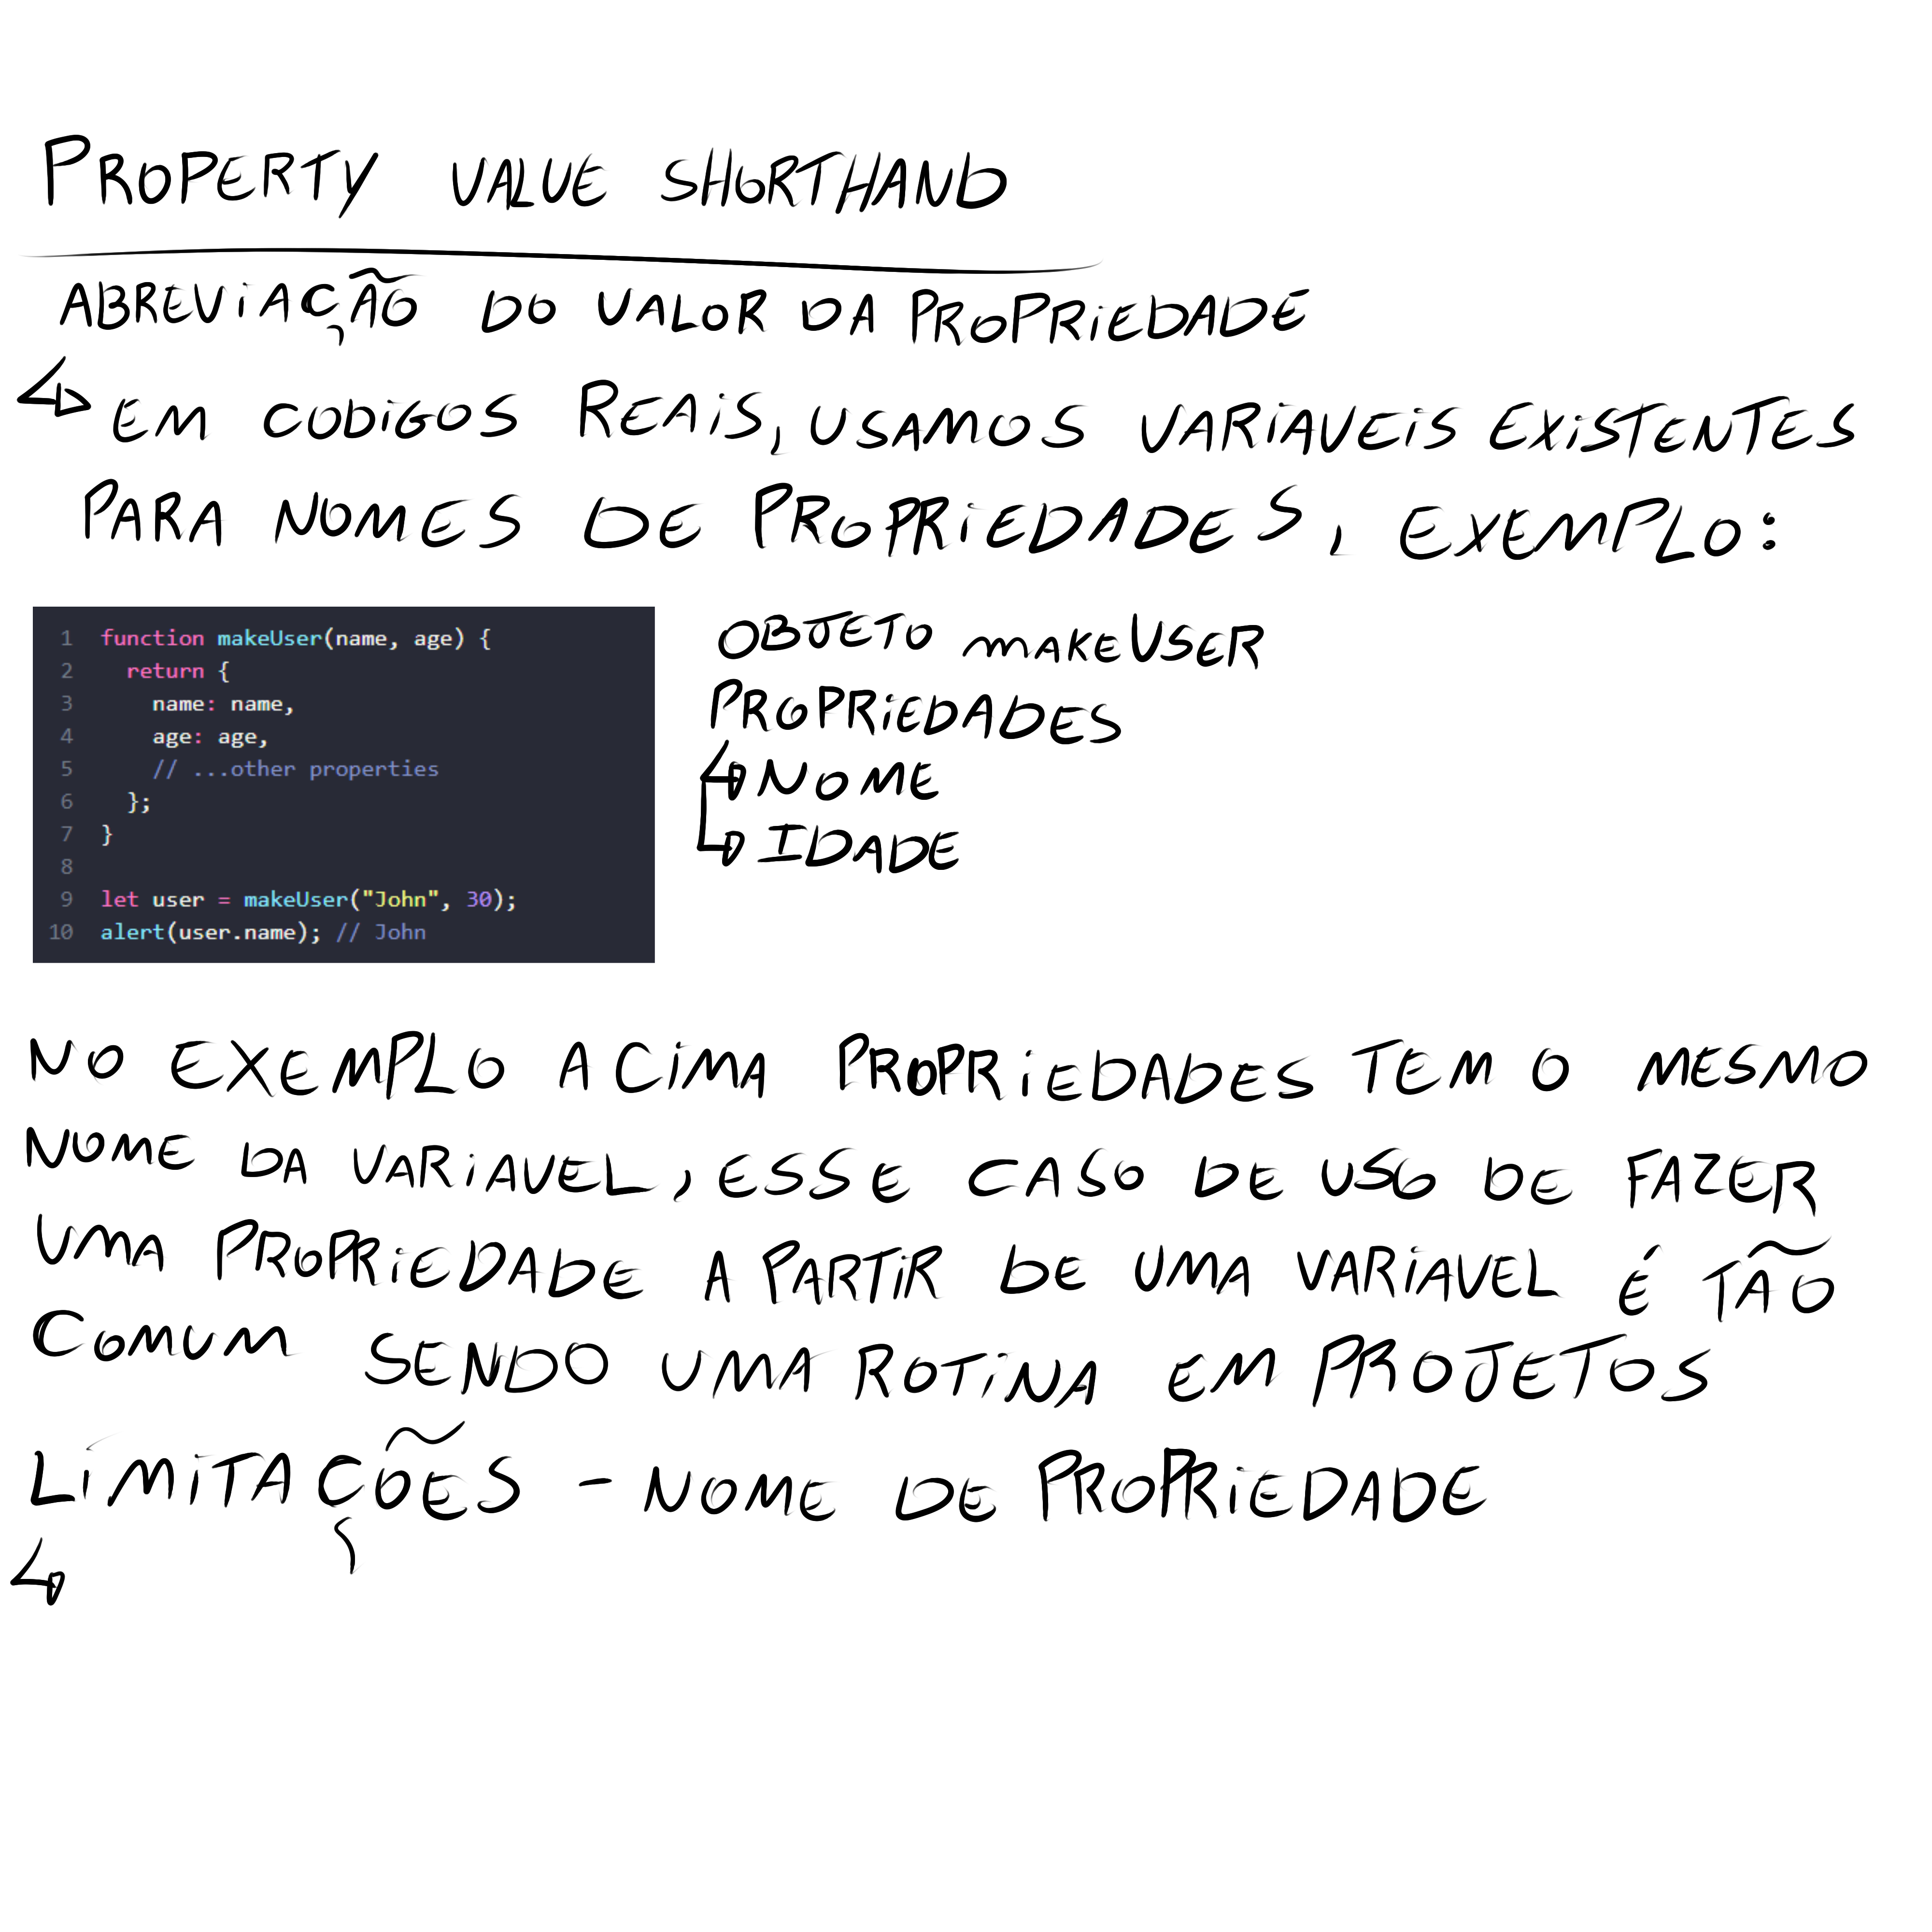 PROPERTY VALUE SHORTHAND
ABREVIAÇÃO DO VALOR DA PROPRIEDADE
EM CODIGOS REAIS, USAMOS VARIAVEIS EXISTENTES
PARA NOMES DE PROPRIEDADES, EXEMPLO:
1 function makeUser(name, age) {
2 return {
3 name: name,
4 age: age,
5 // ...other properties
6 };
7 }
8
9 let user = makeUser("John", 30);
10 alert(user.name); // John
OBJETO makeUSER
PROPRIEDADES
NOME
IDADE
NO EXEMPLO ACIMA PROPRIEDADES TEM O MESMO
NOME DA VARIAVEL, ESSE CASO DE USO DE FAZER
UMA PROPRIEDADE A PARTIR DE UMA VARIAVEL É TÃO
COMUM SENDO UMA ROTINA EM PROJETOS
LIMITAÇÕES - NOME DE PROPRIEDADE